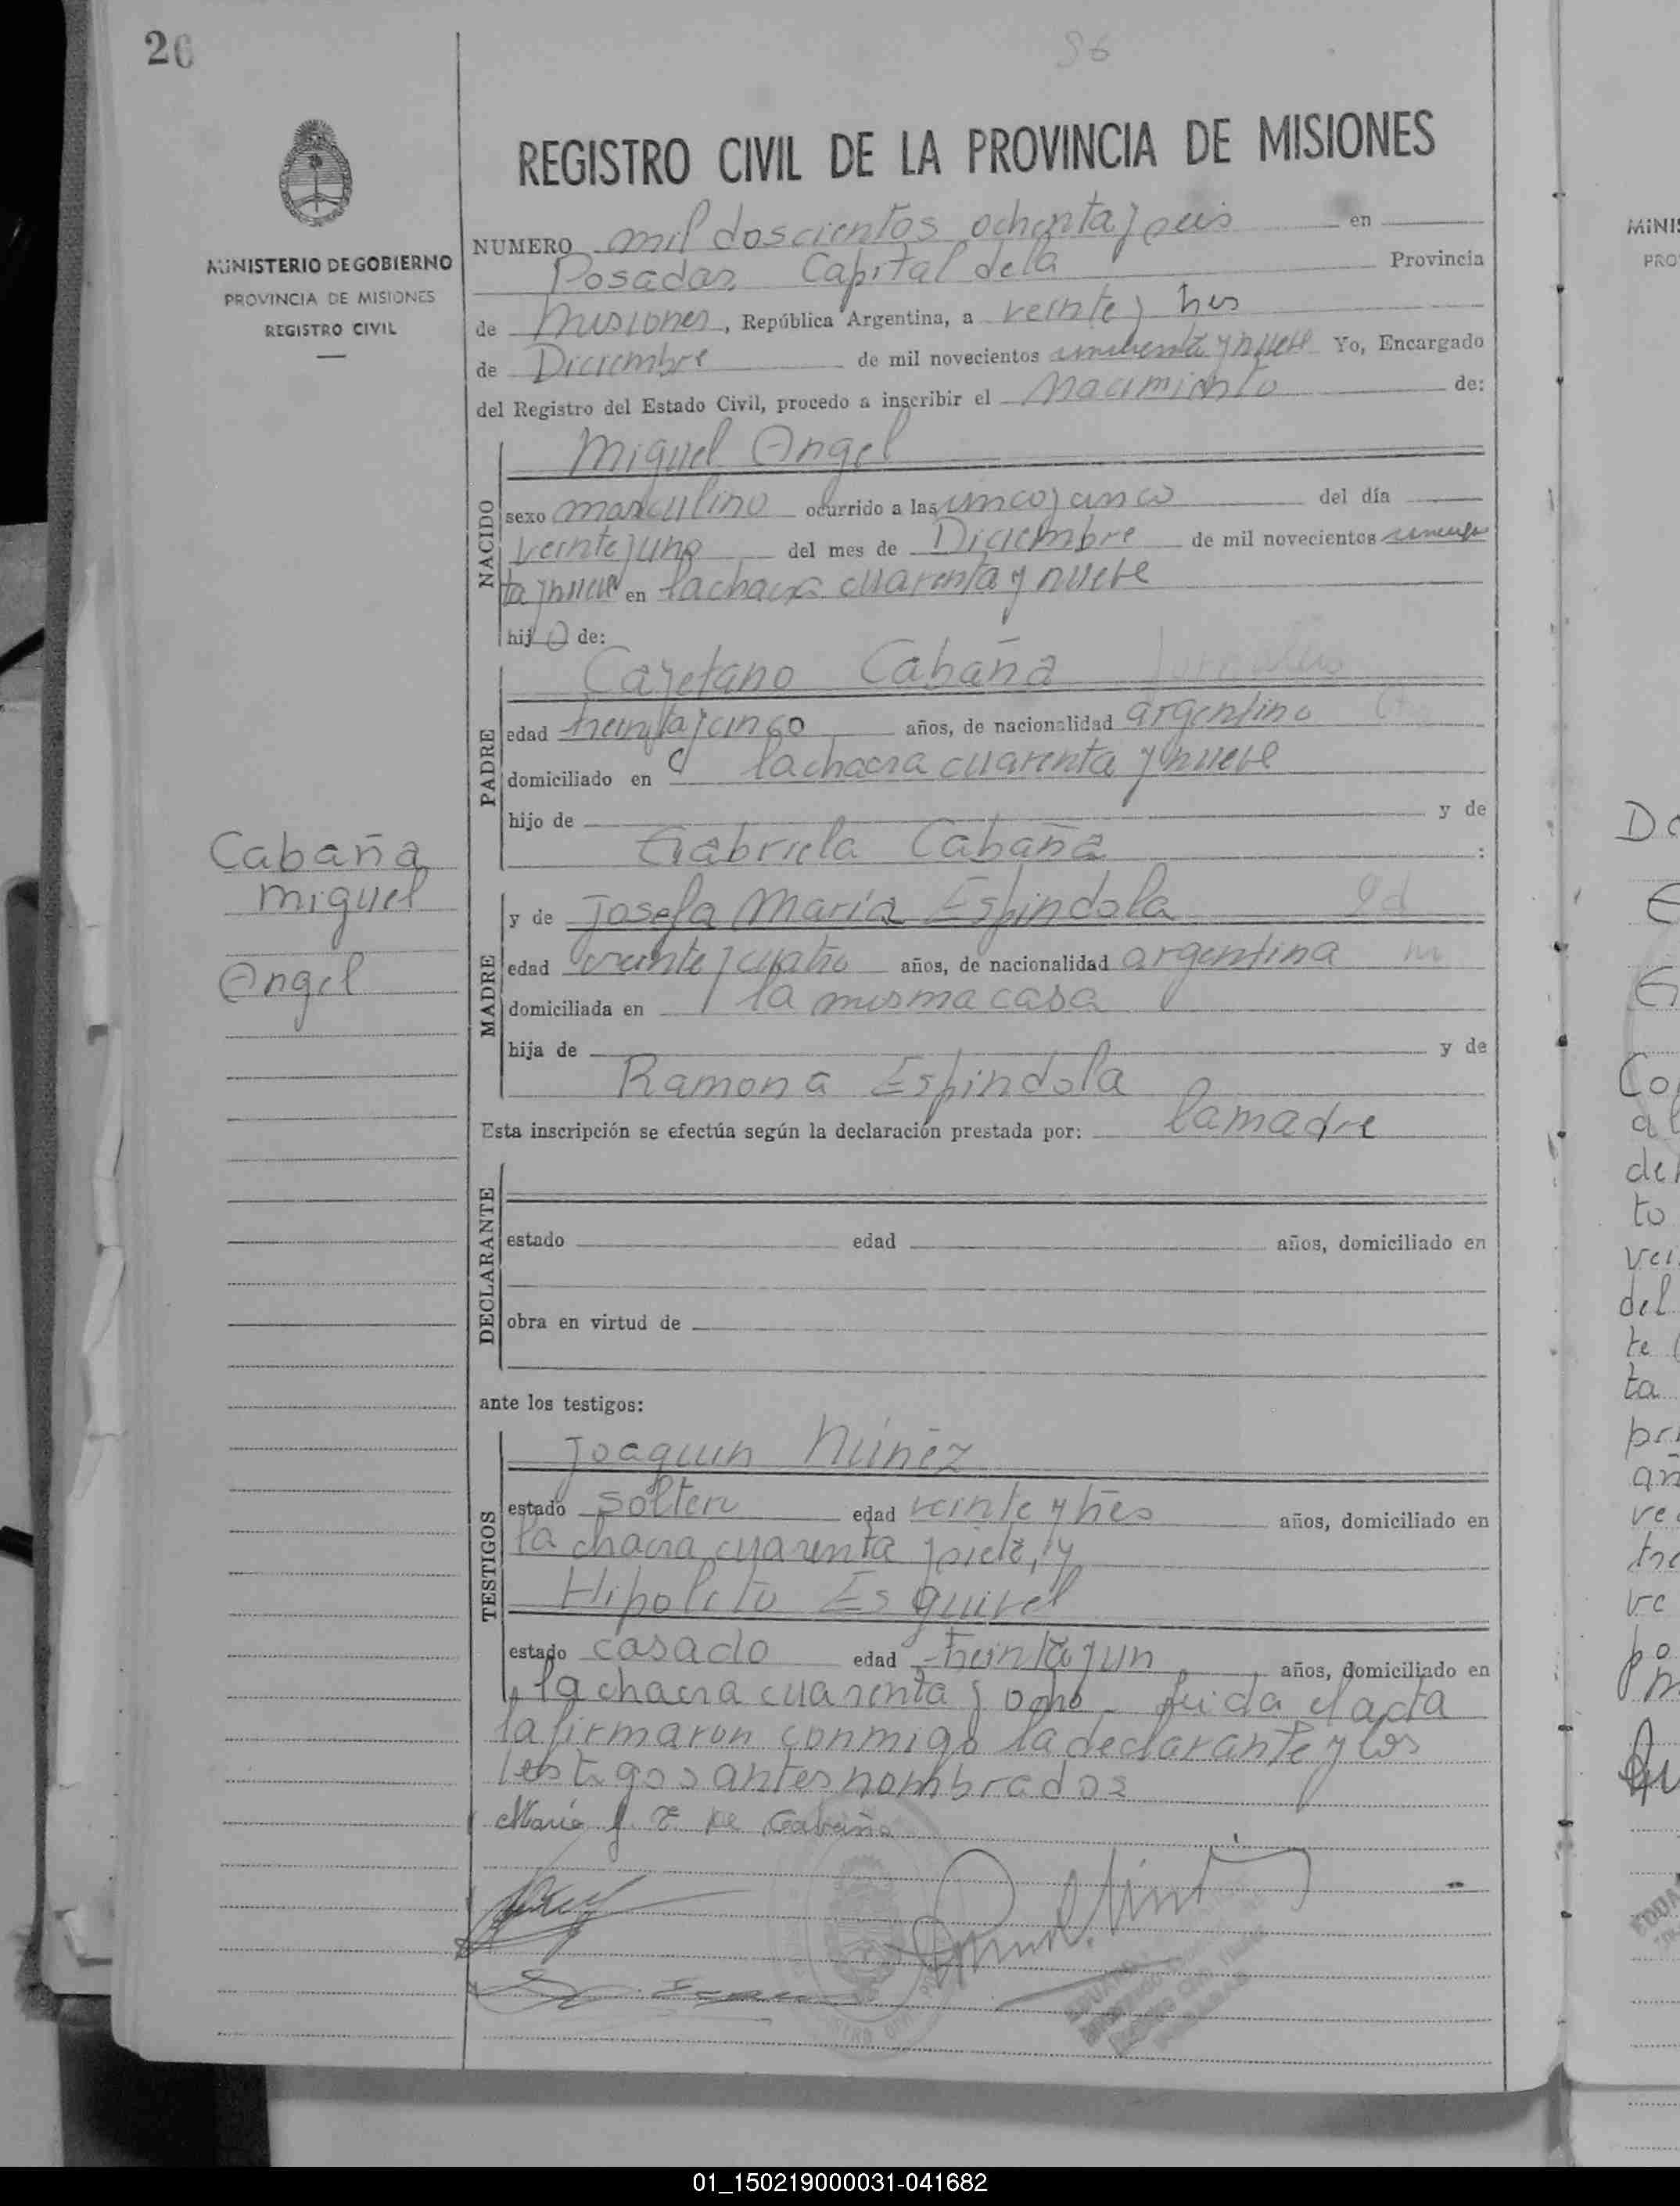 26
96
REGISTRO CIVIL DE LA PROVINCIA DE MISIONES
MINISTERIO DE GOBIERNO
PROVINCIA DE MISIONES
REGISTRO CIVIL
NUMERO mil doscientos ochenta y seis en
Posadas Capital de la Provincia
de Misiones, República Argentina, a veinte y tres
de Diciembre de mil novecientos cincuenta y nueve Yo, Encargado
del Registro del Estado Civil, procedo a inscribir el Nacimiento de:
NACIDO
Miguel Angel
sexo masculino ocurrido a las cinco y cinco del día
veinte y uno del mes de Diciembre de mil novecientos cincuen
ta y nueve en la chacra cuarenta y nueve
hijo de:
PADRE
Cayetano Cabaña
edad treinta y cinco años, de nacionalidad argentino
domiciliado en la chacra cuarenta y nueve
hijo de y de
Gabriela Cabaña :
Cabaña
Miguel
Angel
MADRE
y de Josefa María Espindola
edad veinte y cuatro años, de nacionalidad argentina
domiciliada en la misma casa
hija de y de
Ramona Espindola
Esta inscripción se efectúa según la declaración prestada por: la madre
DECLARANTE
estado edad años, domiciliado en
obra en virtud de
ante los testigos:
TESTIGOS
Joaquin Núñez
estado soltero edad veinte y tres años, domiciliado en
la chacra cuarenta y siete, y
Hipolito Esquivel
estado casado edad treinta y un años, domiciliado en
la chacra cuarenta y ocho - leida el acta
la firmaron conmigo la declarante y los
testigos antes nombrados
María J. E. de Cabaña
MINIS
PRO
Co
al
de
to
del
te
ta
01_150219000031-041682